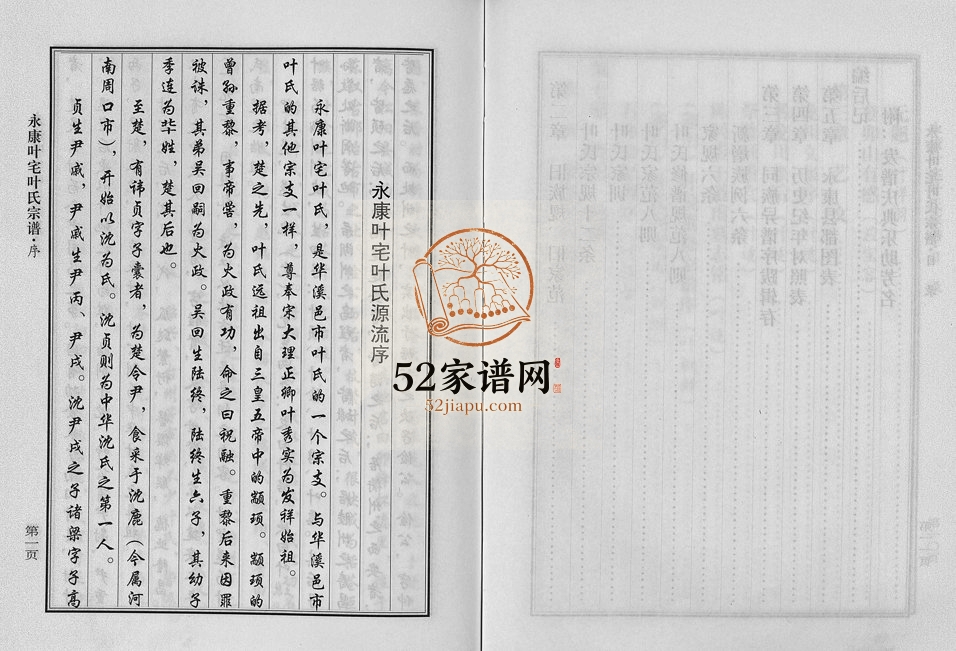 永康叶宅叶氏源流序
永康叶宅叶氏，是华溪邑市叶氏的一个宗支。与华溪邑市
叶氏的其他宗支一样，尊奉宋大理正卿叶秀实为发祥始祖。
据考，楚之先，叶氏远祖出自三皇五帝中的颛顼。颛顼的
曾孙重黎，事帝喾，为火政有功，命之曰祝融。重黎后来因罪
被诛，其弟吴回嗣为火政。吴回生陆终，陆终生六子，其幼子
季连为芈姓，楚其后也。
至楚，有讳贞字子囊者，为楚令尹，食采于沈鹿（今属河
南周口市），开始以沈为氏。沈贞则为中华沈氏之第一人。
贞生尹戚，尹戚生尹丙、尹戌。沈尹戌之子诸梁字子高
永康叶宅叶氏宗谱·序
第一页
52家谱网
52jiapu.com